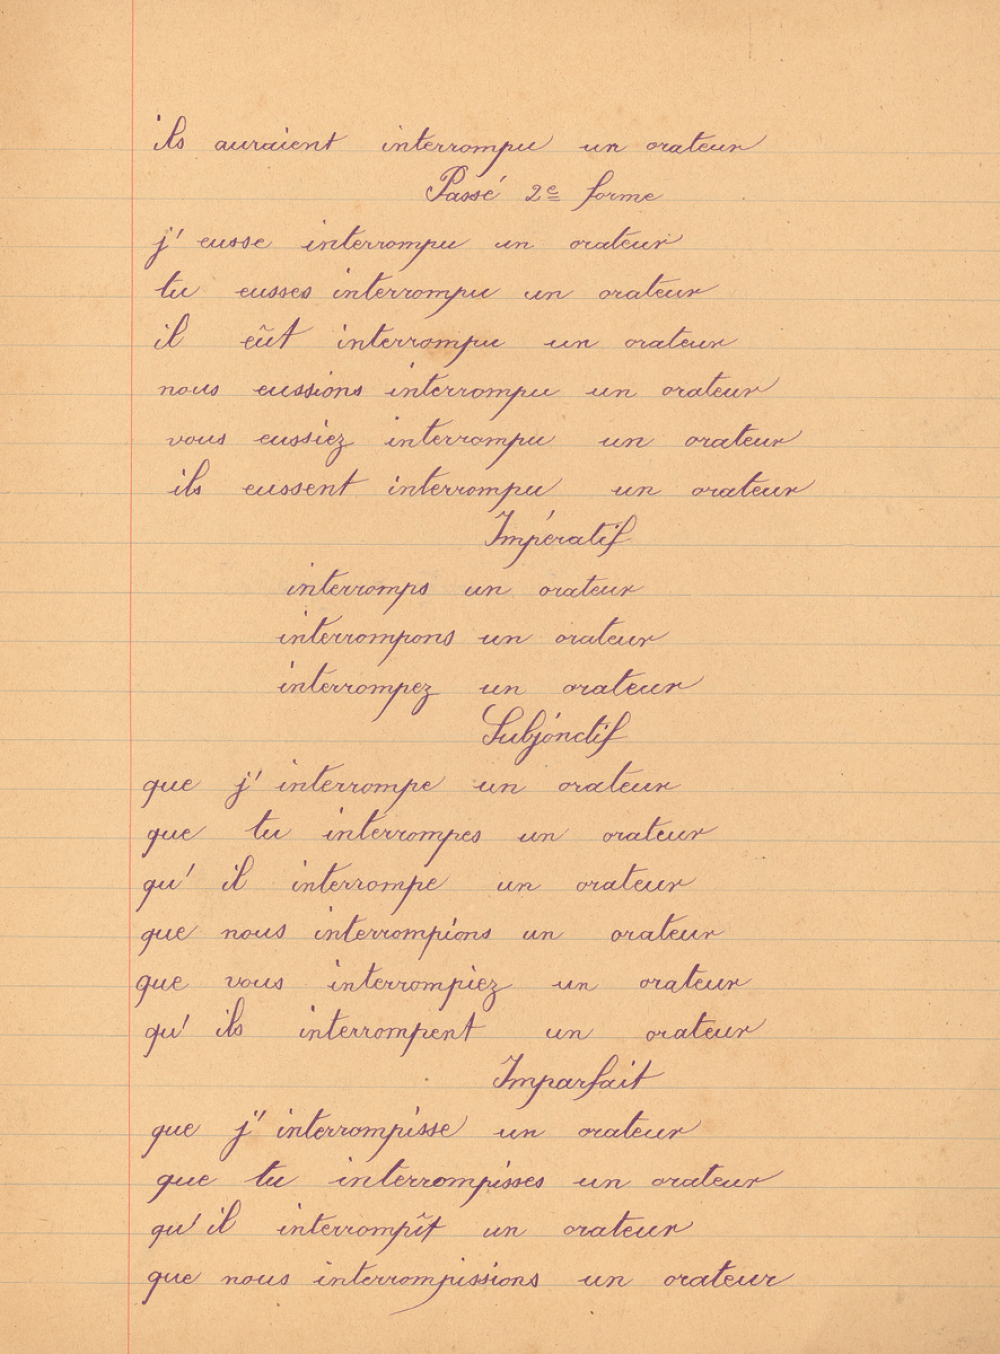 ils auraient interrompu un orateur
Passé 2e forme
j' eusse interrompu un orateur
tu eusses interrompu un orateur
il eût interrompu un orateur
nous eussions interrompu un orateur
vous eussiez interrompu un orateur
ils eussent interrompu un orateur
Impératif
interromps un orateur
interrompons un orateur
interrompez un orateur
Subjonctif
que j' interrompe un orateur
que tu interrompes un orateur
qu' il interrompe un orateur
que nous interrompions un orateur
que vous interrompiez un orateur
qu' ils interrompent un orateur
Imparfait
que j' interrompisse un orateur
que tu interrompisses un orateur
qu' il interrompît un orateur
que nous interrompissions un orateur